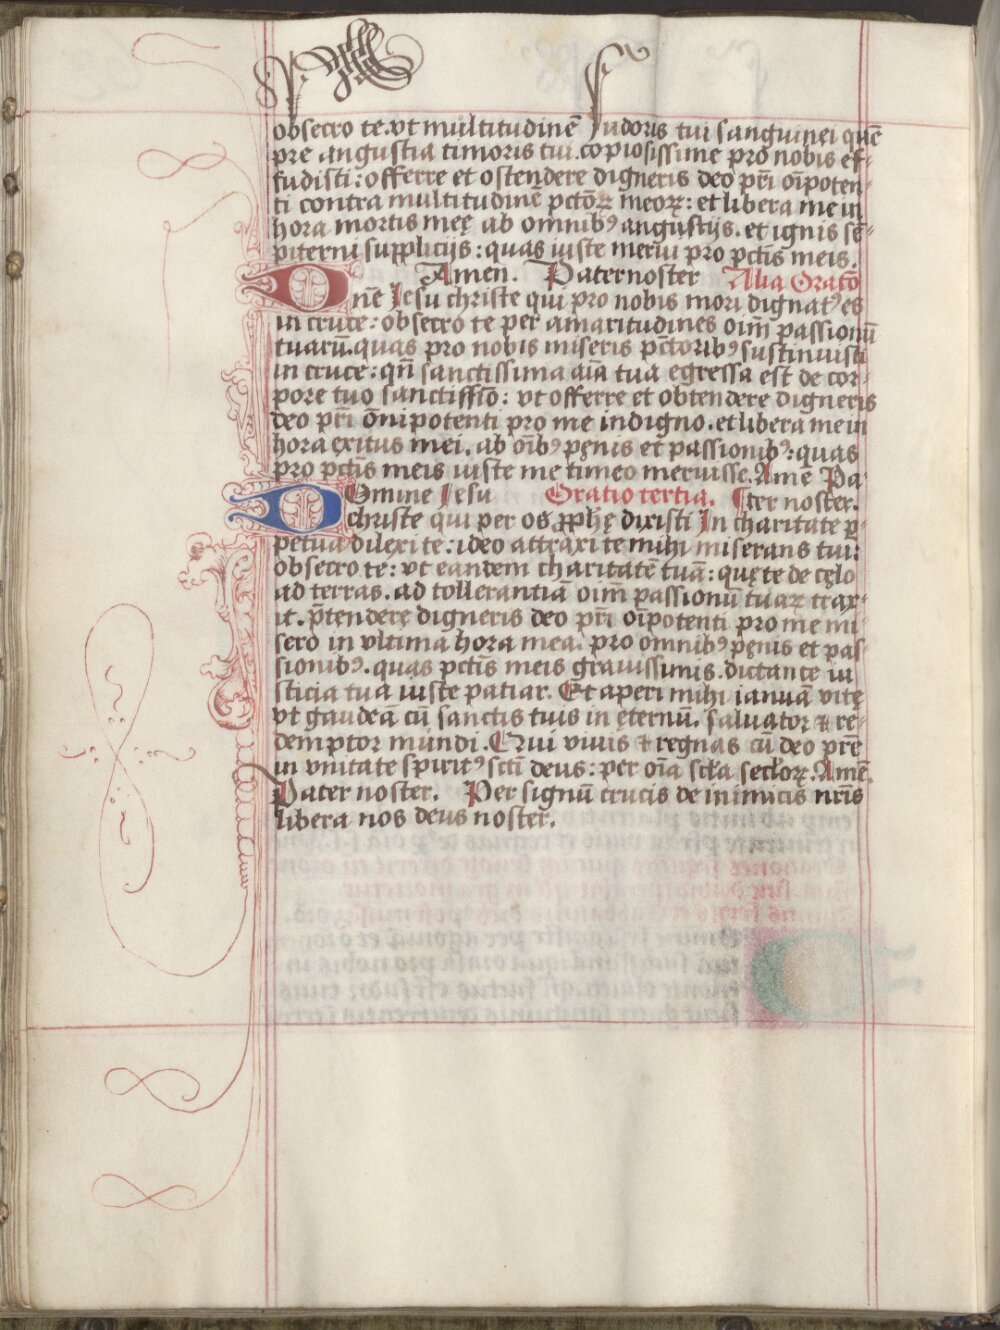 obsecro te. vt multitudinē sudoris tui sanguinei quē
pre angustia timoris tui. copiosissime pro nobis ef-
fudisti: offerre et ostendere digneris deo pr̄i oīpoten-
ti contra multitudinē pctōꝝ meoꝝ: et libera me in
hora mortis meę ab omnibꝰ angustijs. et ignis sē-
piterni suppliciįs: quas iuste merui pro pctīs meis.
Amen. Pater noster Alia Oratō
Dn̄e Jesu christe qui pro nobis mori dignatꝰ es
in cruce: obsecro te per amaritudines oīm passionū
tuarū. quas pro nobis miseris pctōribꝰ sustinuisti
in cruce: qn̄ sanctissima aīa tua egressa est de cor-
pore tuo sanctissīō: vt offerre et obtendere digneris
deo pr̄i om̄ipotenti pro me indigno. et libera me in
hora exitus mei. ab oībꝰ pęnis et passionibꝰ: quas
pro pctīs meis iuste me timeo meruisse. Amē Pa-
ter noster.
Domine Jesu Oratio tertia.
christe qui per os ꝓphę dixisti In charitate ꝑ-
petua dilexi te: ideo attraxi te mihi miserans tui:
obsecro te: vt eandem charitatē tuā: quę te de cęlo
ad terras. ad tollerantiā oīm passionū tuaꝝ trax-
it. p̄tendere digneris deo pr̄i oīpotenti pro me mi-
sero in vltima hora mea. pro omnibꝰ pęnis et pas-
sionibꝰ. quas pctīs meis grauissimis. dictante iu-
sticia tua iuste patiar. Et aperi mihi ianuā vitę
vt gaudeā cū sanctis tuis in ęternū. saluator ⁊ re-
demptor mundi. Qui viuis ⁊ regnas cū deo pr̄e
in vnitate spiritꝰ sctī deus: per oīa scl̄a secl̄oꝝ. Amē.
Pater noster. Per signū crucis de inimicis nr̄is
libera nos deus noster.